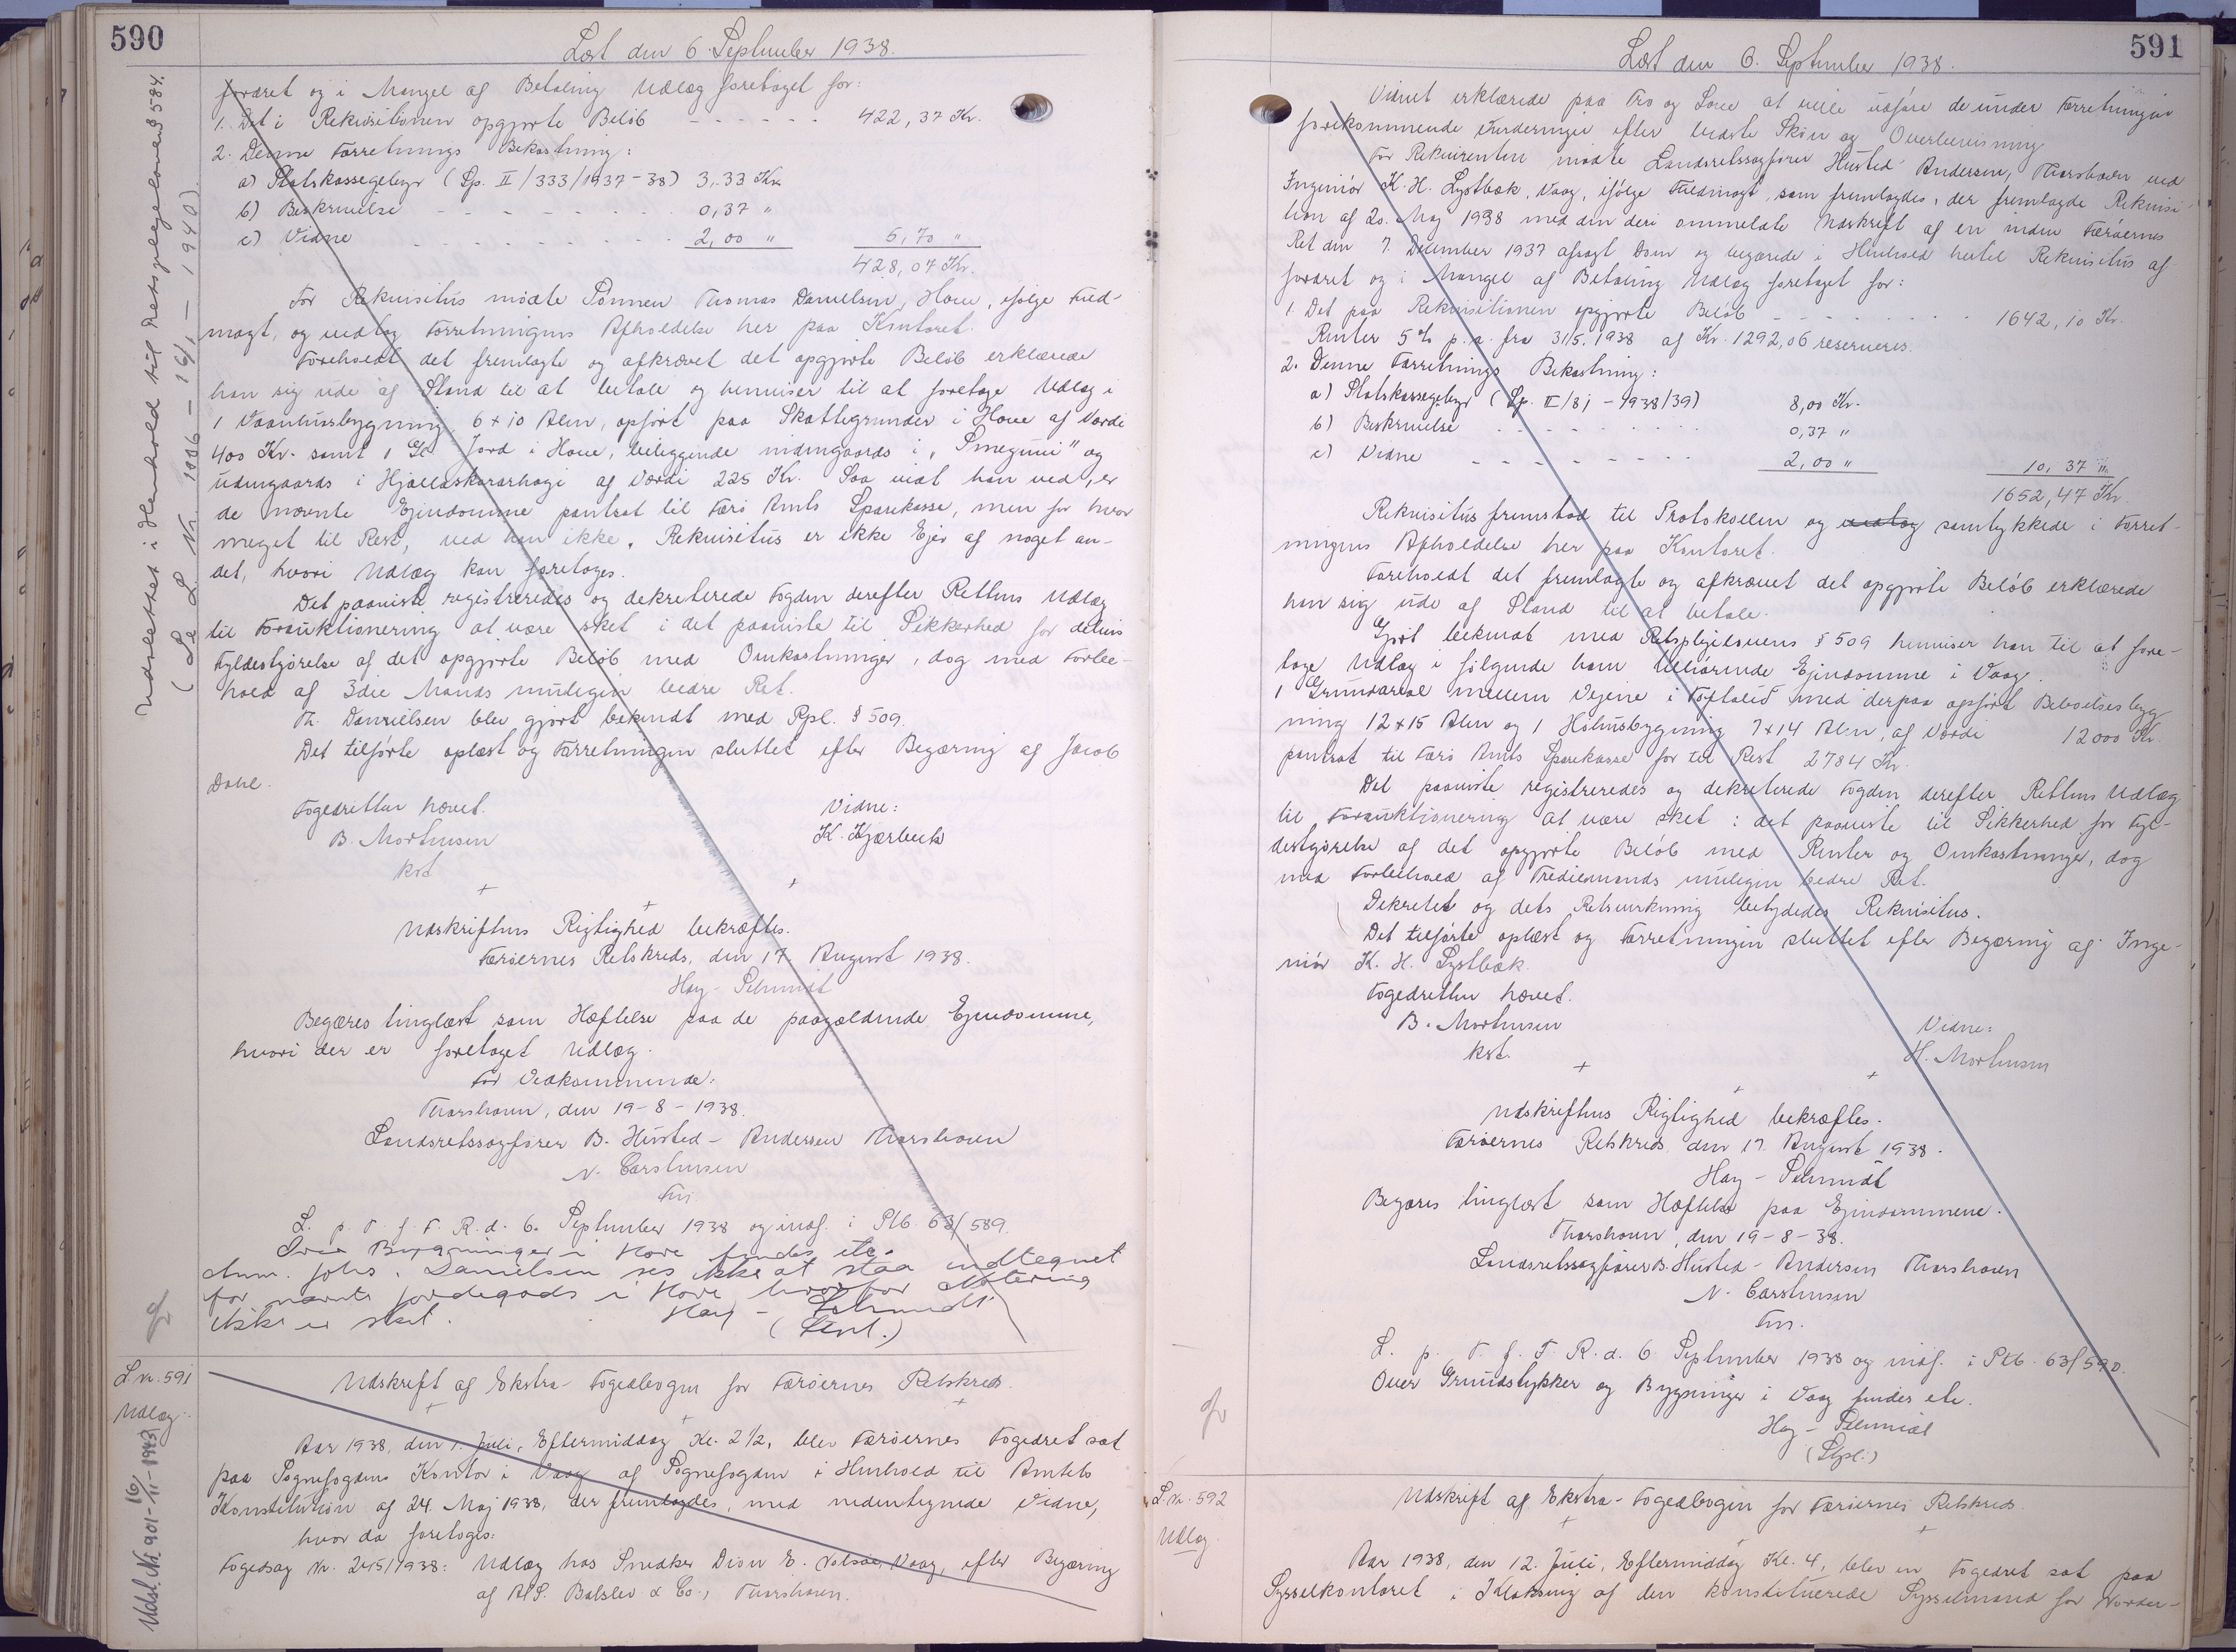 590
Læst den 6. September 1938.
Udslettet i Henhold til Retsplejelovens § 584.
(Se L. Nr. 1006 - 16/1 - 1940)
fordret og i Mangel af Betaling Udlæg foretaget for:
1. Det i Rekvisitionen opgjorte Beløb - - - - - - 422,37 Kr.
2. Denne Forretnings Bekostning:
a) Statskassegebyr (Sp. II/333/1937-38) 3,33 Kr.
b) Beskrivelse - - - - - - - - 0,37 "
c) Vidne - - - - - - - - - 2,00 " 5,70 "
428,07 Kr.
For Rekvisitus mødte Sønnen Thomas Danielsen, Hove, ifølge Fuld-
magt, og vedtog Forretningens Afholdelse her paa Kontoret.
Foreholdt det fremlagte og afkrævet det opgjorte Beløb erklærede
han sig ude af Stand til at betale og henviser til at foretage Udlæg i
1 Vaanhusbygning, 6 x 10 Alen, opført paa Skattegrunder i Hove af Værdi
400 Kr. samt 1 Gl. Jord i Hove, beliggende indengaards i, "Smeginni" og
udengaards i Hjallaskorarhagi af Værdi 225 Kr. Saa vidt han ved, er
de nævnte Ejendomme pantsat til Færø Amts Sparekasse, men for hvor
meget til Rest, ved han ikke. Rekvisitus er ikke Ejer af noget an-
det, hvori Udlæg kan foretages.
Det paaviste registreredes og dekreterede Fogden derefter Rettens Udlæg
til Forauktionering at være sket i det paaviste til Sikkerhed for delvis
Fyldestgørelse af det opgjorte Beløb med Omkostninger, dog med Forbe-
hold af 3die Mands muligen bedre Ret.
Th. Danielsen blev gjort bekendt med Rpl. § 509.
Det tilførte oplæst og Forretningen sluttet efter Begæring af Jacob
Dahl.
Fogedretten hævet. Vidne:
B. Mortensen K. Kjærbech
kst.
Udskriftens Rigtighed bekræftes.
Færøernes Retskreds, den 17. August 1938.
Hay-Schmidt
Begæres tinglæst som Hæftelse paa de paagældende Ejendomme,
hvori der er foretaget Udlæg.
For Vedkommende:
Thorshavn, den 19-8-1938.
Landsretssagfører B. Husted-Andersen Thorshavn
N. Carstensen
Fm.
L. p. T. f. F. R. d. 6. September 1938 og indf. i Ptb. 63/589.
Over Bygninger i Hove findes etc.
Anm. Johs. Danielsen ses ikke at staa indtegnet
for nævnte Jordegods i Hove hvorfor Notering
ikke er sket. Hay-Schmidt
(Stpl.)
L. nr. 591
Udlæg.
Udsl. Nr. 901 - 16/11 - 1943
Udskrift af Ekstra-Fogedbogen for Færøernes Retskreds.
Aar 1938, den 1. Juli, Eftermiddag Kl. 2 1/2, blev Færøernes Fogedret sat
paa Sognefogdens Kontor i Vaag af Sognefogden i Henhold til Amtets
Konstitution af 24. Maj 1938, der fremlagdes, med nedentegnede Vidne,
hvor da foretoges:
Fogedsag Nr. 245/1938: Udlæg hos Snedker Dion E. Vølsøe, Vaag, efter Begæring
af A/S. Balslev & Co., Thorshavn.
591
Læst den 6. September 1938.
Vidnet erklærede paa Tro og Love at ville udføre de under Forretningen
forekommende Vurderinger efter bedste Skøn og Overbevisning.
For Rekvirenten mødte Landsretssagfører Husted-Andersen, Thorshavn ved
Ingeniør K. H. Lystbæk, Vaag, ifølge Fuldmagt, som fremlagdes, der fremlagde Rekvisi-
tion af 20. Maj 1938 med den deri ommeldte Udskrift af en inden Færøernes
Ret den 7. December 1937 afsagt Dom og begærede i Henhold hertil Rekvisitus af-
fordret og i Mangel af Betaling Udlæg foretaget for:
1. Det paa Rekvisitionen opgjorte Beløb - - - - - - - 1642,10 Kr.
Renter 5 % p. a. fra 31/5. 1938 af Kr. 1292,06 reserveres.
2. Denne Forretnings Bekostning:
a) Statskassegebyr (Sp. II/81 - 1938/39) 8,00 Kr.
b) Beskrivelse - - - - - - - - 0,37 "
c) Vidne - - - - - - - - 2,00 " 10,37 "
1652,47 Kr.
Rekvisitus fremstod til Protokollen og vedtog samtykkede i Forret-
ningens Afholdelse her paa Kontoret.
Foreholdt det fremlagte og afkrævet det opgjorte Beløb erklærede
han sig ude af Stand til at betale.
Gjort bekendt med Retsplejelovens § 509 henviser han til at fore-
tage Udlæg i følgende ham tilhørende Ejendomme i Vaag.
1 Grundareal mellem Vejene i Toftalið med derpaa opført Beboelsesbyg-
ning 12 x 15 Alen og 1 Høhusbygning 7 x 14 Alen, af Værdi 12000 Kr.
pantsat til Færø Amts Sparekasse for til Rest 2784 Kr.
Det paaviste registreredes og dekreterede Fogden derefter Rettens Udlæg
til Forauktionering at være sket i det paaviste til Sikkerhed for Fyl-
destgørelse af det opgjorte Beløb med Renter og Omkostninger, dog
med Forbehold af Trediemands muligen bedre Ret.
Dekretet og dets Retsvirkning betydedes Rekvisitus.
Det tilførte oplæst og Forretningen sluttet efter Begæring af Inge-
niør K. H. Lystbæk.
Fogedretten hævet.
B. Mortensen Vidne:
kst. H. Mortensen
Udskriftens Rigtighed bekræftes.
Færøernes Retskreds, den 17. August 1938.
Hay-Schmidt
Begæres tinglæst som Hæftelse paa Ejendommene.
Thorshavn, den 19-8-38.
Landsretssagfører B. Husted-Andersen Thorshavn
N. Carstensen
Fm.
L. p. T. f. F. R. d. 6. September 1938 og indf. i Ptb. 63/590.
Over Grundstykker og Bygninger i Vaag findes etc.
Hay-Schmidt
(Stpl.)
L. nr. 592
Udlæg.
Udskrift af Ekstra-Fogedbogen for Færøernes Retskreds.
Aar 1938, den 12. Juli, Eftermiddag Kl. 4, blev en Fogedret sat paa
Sysselkontoret i Klaksvig af den konstituerede Sysselmand for Norder-